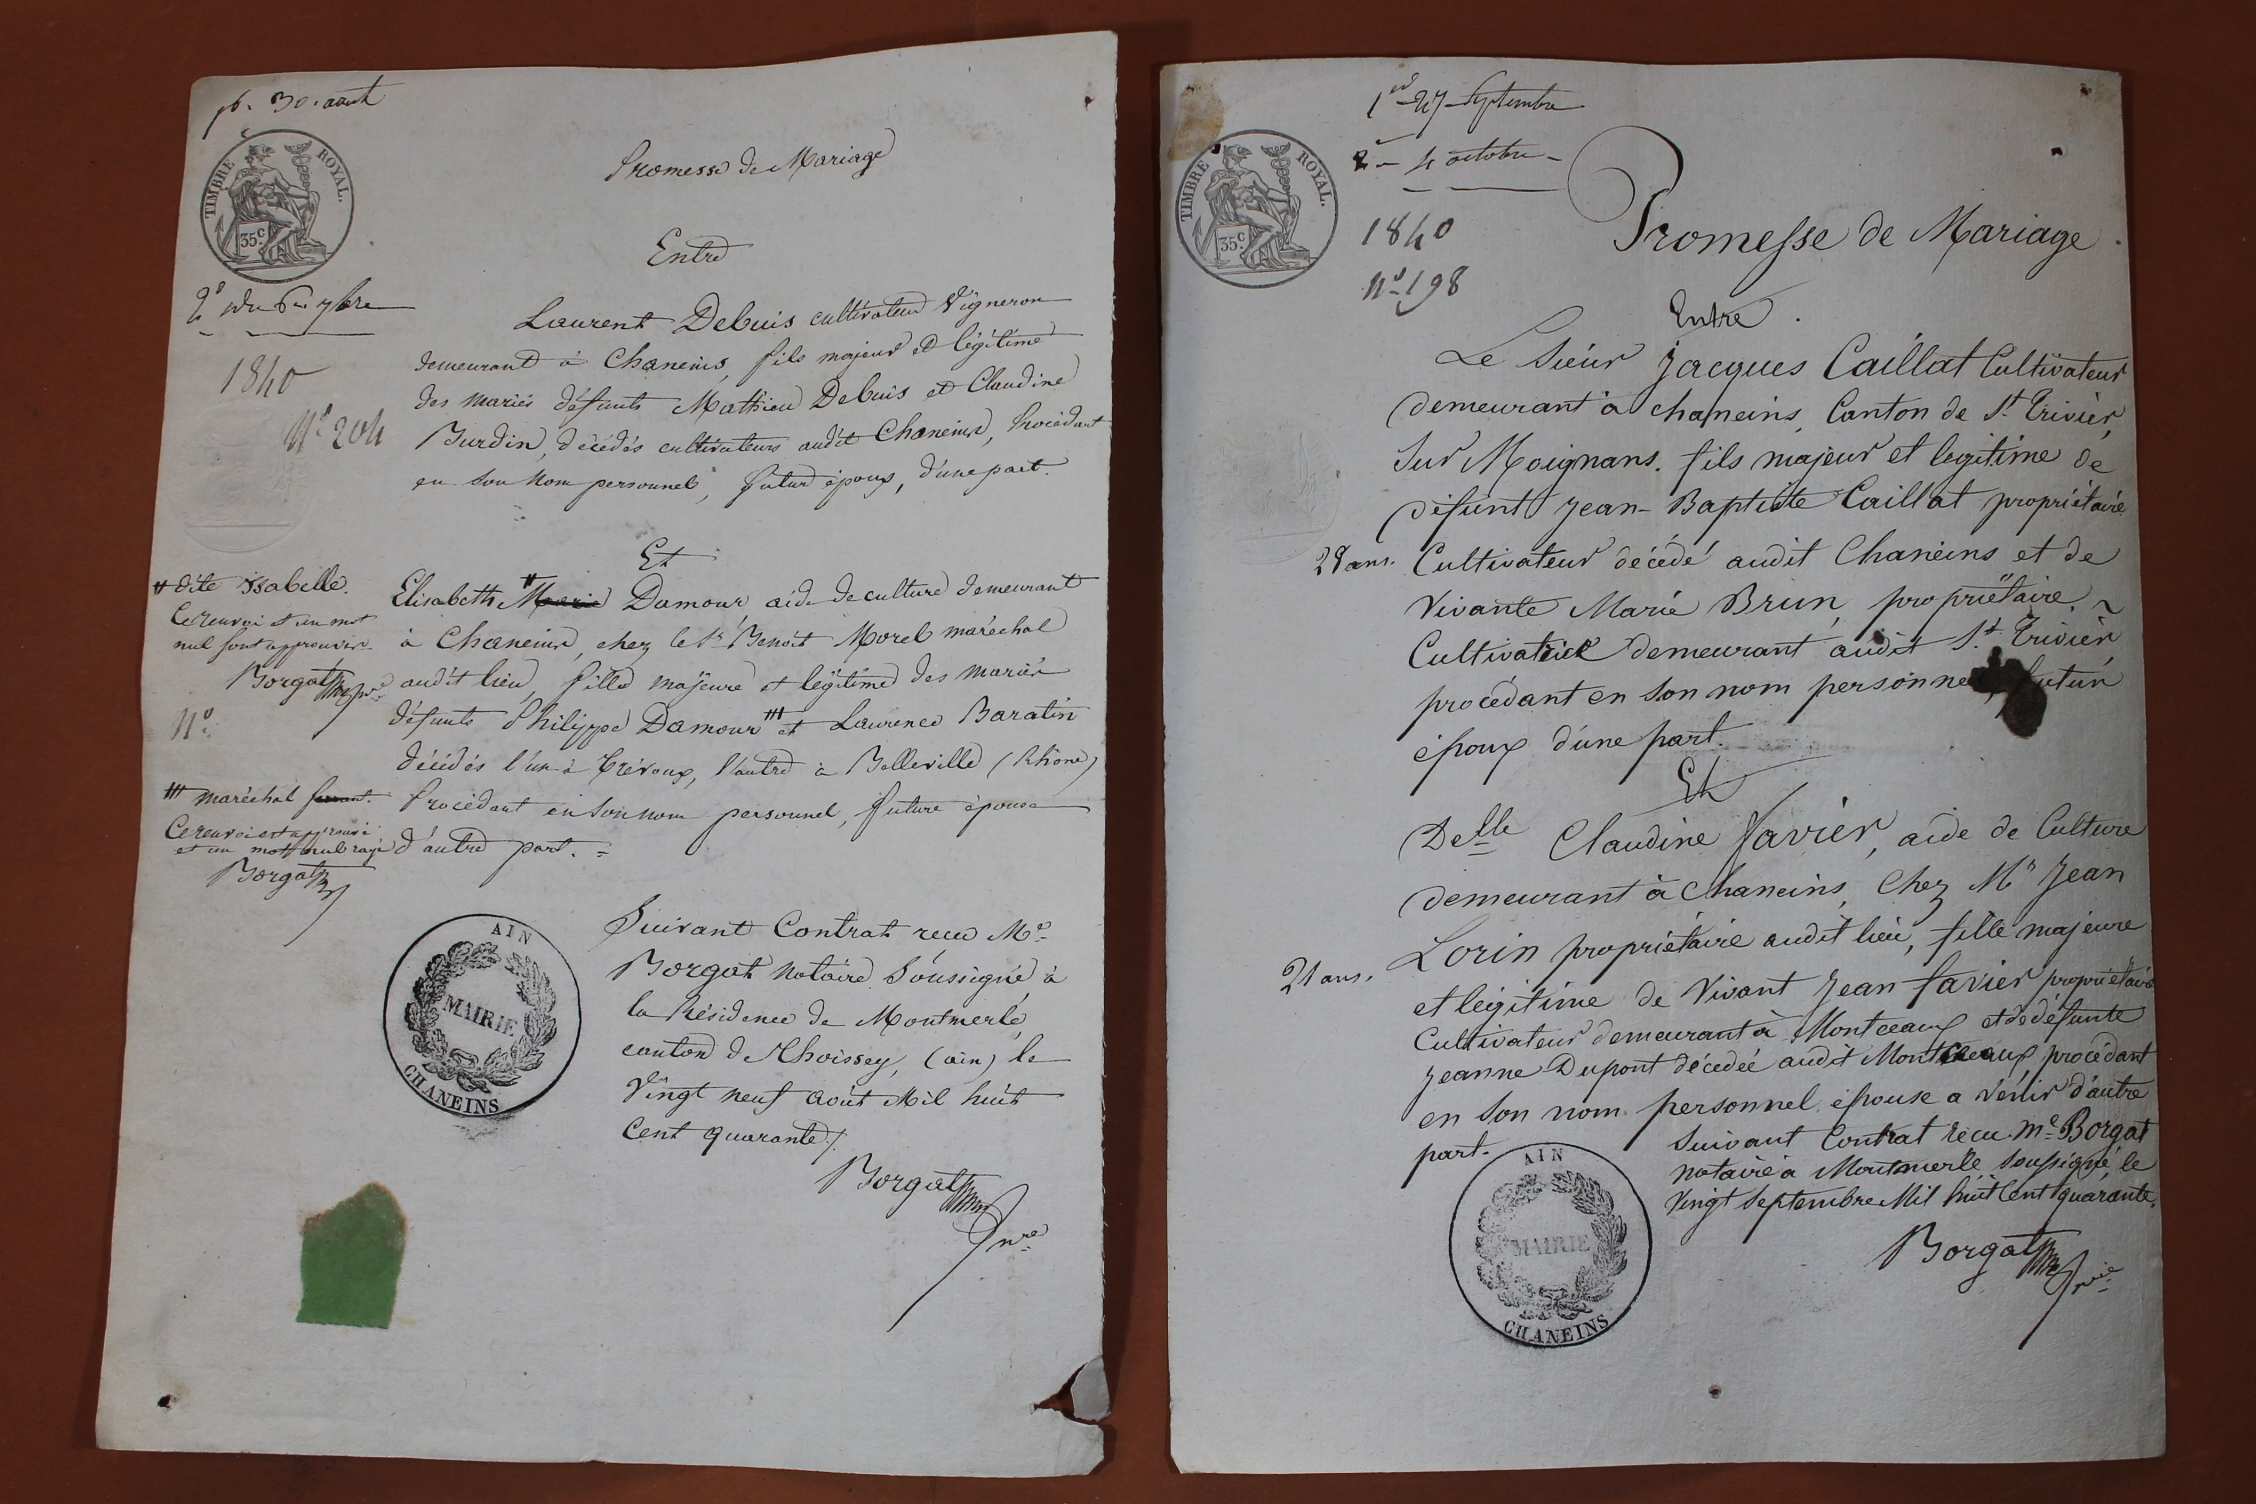 30. août
TIMBRE ROYAL.
35 c.
Promesse de Mariage
Entre
1840
N° 204
Laurent Debuis cultivateur Vigneron
demeurant à Chaneins, fils majeur et légitime
des mariés défunts Mathieu Debuis et Claudine
Burdin, décédés cultivateurs audit Chaneins, Procédant
en son Nom personnel, futur époux, d'une part.
Et
# dite Isabelle.
Ce renvoi et un mot
nul sont approuvés.
Borgat
N°
Elisabeth # Marie Damour, aide de culture demeurant
à Chaneins, chez le Sr Benoit Morel maréchal
audit lieu, fille majeure et légitime des mariés
défunts Philippe Damour et Laurence Baratin
décédés l'un à Trévoux, l'autre à Belleville (Rhône)
Procédant en son nom personnel, future épouse
d'autre part. =
maréchal ferrant.
Ce renvoi est approuvé
et un mot nul rayé
Borgat
Suivant Contrat reçu Me
Borgat Notaire Soussigné à
la Résidence de Montmerle,
canton de Thoissey, (ain) le
Vingt neuf août Mil huit
Cent quarante /.
Borgat
nre
AIN
MAIRIE
CHANEINS
1er 27 Septembre
2e - 4 octobre -
1840
N° 198
TIMBRE ROYAL.
35 c.
Promesse de Mariage.
Entre.
Le Sieur Jacques Caillat Cultivateur
demeurant à chaneins, Canton de St. Trivier,
Sur Moignans. fils majeur et legitime de
défunt Jean-Baptiste Caillat propriétaire
28 ans. Cultivateur décédé audit Chaneins et de
Vivante Marie Brun, propriétaire
Cultivatrice demeurant audit St. Trivier
procédant en son nom personnel, futur
époux d'une part.
Et
Delle Claudine Favier, aide de Culture
demeurant à Chaneins, Chez Mr Jean
Lorin propriétaire audit lieu, fille majeure
21 ans. et légitime de Vivant Jean Favier propriétaire
Cultivateur demeurant à Montceaux et de défunte
Jeanne Dupont décédée audit Montceaux procédant
en son nom personnel épouse a venir d'autre
part.
Suivant Contrat reçu Me Borgat
notaire à Montmerle soussigné le
Vingt Septembre Mil huit Cent quarante.
Borgat
AIN
MAIRIE
CHANEINS